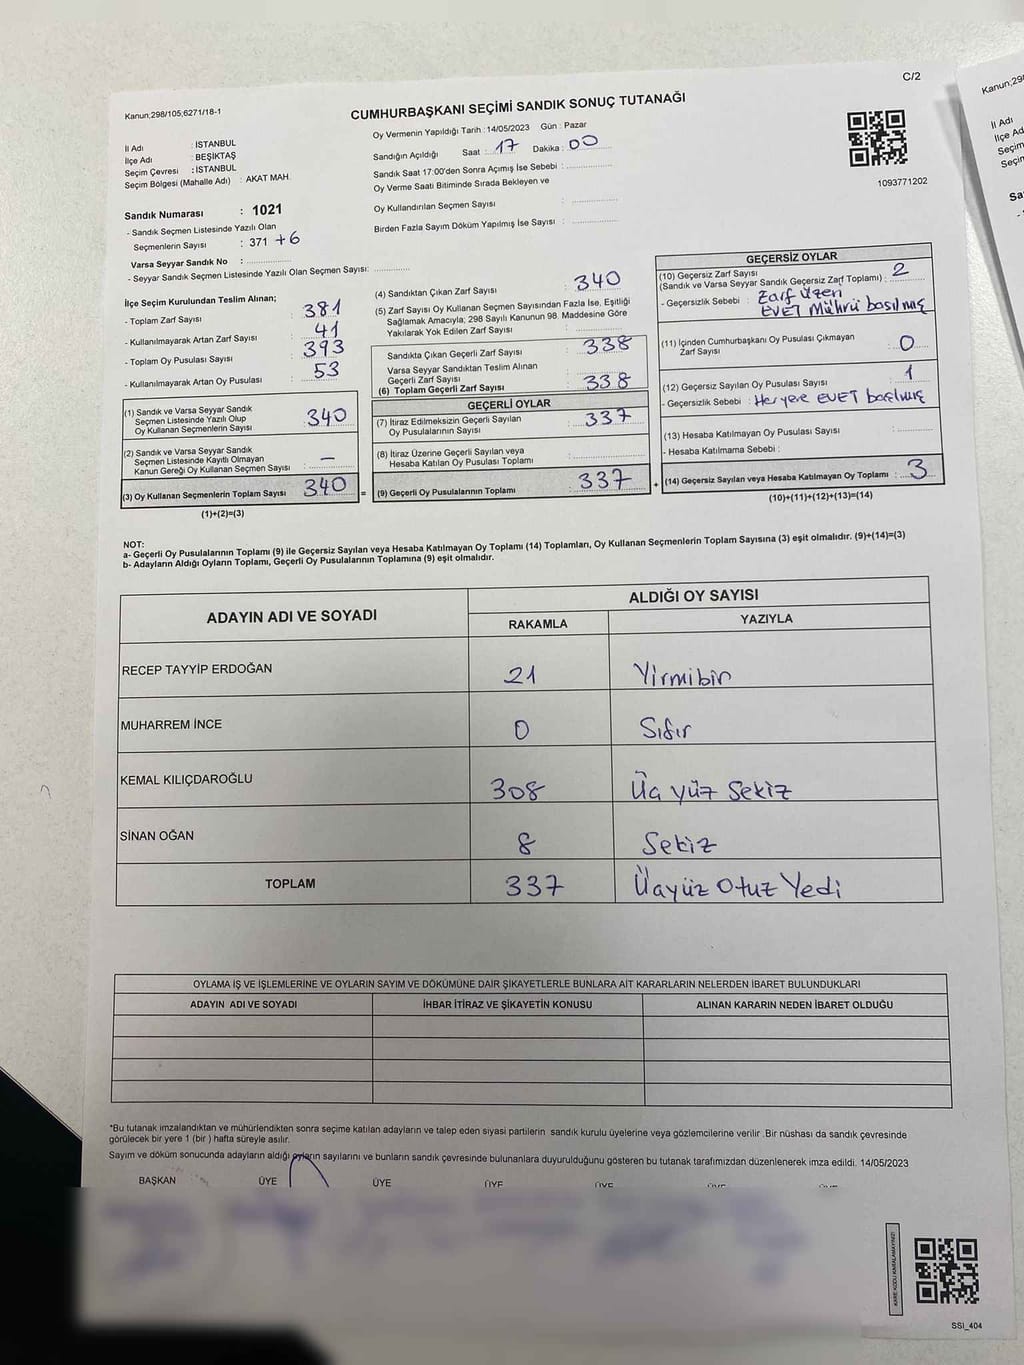 C/2
Kanun;298/105;6271/18-1
CUMHURBAŞKANI SEÇİMİ SANDIK SONUÇ TUTANAĞI
İl Adı : İSTANBUL
İlçe Adı : BEŞİKTAŞ
Seçim Çevresi : İSTANBUL
Seçim Bölgesi (Mahalle Adı) : AKAT MAH.
Oy Vermenin Yapıldığı Tarih : 14/05/2023 Gün : Pazar
Sandığın Açıldığı Saat : 17 Dakika : 00
Sandık Saat 17:00'den Sonra Açımış İse Sebebi :
Oy Verme Saati Bitiminde Sırada Bekleyen ve
Oy Kullandırılan Seçmen Sayısı :
Birden Fazla Sayım Döküm Yapılmış İse Sayısı :
1093771202
Sandık Numarası : 1021
- Sandık Seçmen Listesinde Yazılı Olan
Seçmenlerin Sayısı : 371 +6
Varsa Seyyar Sandık No :
- Seyyar Sandık Seçmen Listesinde Yazılı Olan Seçmen Sayısı:
İlçe Seçim Kurulundan Teslim Alınan;
- Toplam Zarf Sayısı : 381
- Kullanılmayarak Artan Zarf Sayısı : 41
- Toplam Oy Pusulası Sayısı : 393
- Kullanılmayarak Artan Oy Pusulası : 53
(1) Sandık ve Varsa Seyyar Sandık
Seçmen Listesinde Yazılı Olup
Oy Kullanan Seçmenlerin Sayısı : 340
(2) Sandık ve Varsa Seyyar Sandık
Seçmen Listesinde Kayıtlı Olmayan
Kanun Gereği Oy Kullanan Seçmen Sayısı : —
(3) Oy Kullanan Seçmenlerin Toplam Sayısı 340 =
(1)+(2)=(3)
(4) Sandıktan Çıkan Zarf Sayısı : 340
(5) Zarf Sayısı Oy Kullanan Seçmen Sayısından Fazla İse, Eşitliği
Sağlamak Amacıyla; 298 Sayılı Kanunun 98. Maddesine Göre
Yakılarak Yok Edilen Zarf Sayısı :
Sandıkta Çıkan Geçerli Zarf Sayısı : 338
Varsa Seyyar Sandıktan Teslim Alınan
Geçerli Zarf Sayısı :
(6) Toplam Geçerli Zarf Sayısı : 338
GEÇERLİ OYLAR
(7) İtiraz Edilmeksizin Geçerli Sayılan
Oy Pusulalarının Sayısı : 337
(8) İtiraz Üzerine Geçerli Sayılan veya
Hesaba Katılan Oy Pusulası Toplamı :
(9) Geçerli Oy Pusulalarının Toplamı : 337 +
GEÇERSİZ OYLAR
(10) Geçersiz Zarf Sayısı
(Sandık ve Varsa Seyyar Sandık Geçersiz Zarf Toplamı) : 2
- Geçersizlik Sebebi : Zarf Üzeri
EVET Mührü basılmış
(11) İçinden Cumhurbaşkanı Oy Pusulası Çıkmayan
Zarf Sayısı : 0
(12) Geçersiz Sayılan Oy Pusulası Sayısı : 1
- Geçersizlik Sebebi : Her yere EVET basılmış
(13) Hesaba Katılmayan Oy Pusulası Sayısı :
- Hesaba Katılmama Sebebi :
(14) Geçersiz Sayılan veya Hesaba Katılmayan Oy Toplamı : 3
(10)+(11)+(12)+(13)=(14)
NOT:
a- Geçerli Oy Pusulalarının Toplamı (9) ile Geçersiz Sayılan veya Hesaba Katılmayan Oy Toplamı (14) Toplamları, Oy Kullanan Seçmenlerin Toplam Sayısına (3) eşit olmalıdır. (9)+(14)=(3)
b- Adayların Aldığı Oyların Toplamı, Geçerli Oy Pusulalarının Toplamına (9) eşit olmalıdır.
ADAYIN ADI VE SOYADI
ALDIĞI OY SAYISI
RAKAMLA YAZIYLA
RECEP TAYYİP ERDOĞAN 21 Yirmibir
MUHARREM İNCE 0 Sıfır
KEMAL KILIÇDAROĞLU 308 Üç yüz Sekiz
SİNAN OĞAN 8 Sekiz
TOPLAM 337 Üçyüz Otuz Yedi
OYLAMA İŞ VE İŞLEMLERİNE VE OYLARIN SAYIM VE DÖKÜMÜNE DAİR ŞİKAYETLERLE BUNLARA AİT KARARLARIN NELERDEN İBARET BULUNDUKLARI
ADAYIN ADI VE SOYADI İHBAR İTİRAZ VE ŞİKAYETİN KONUSU ALINAN KARARIN NEDEN İBARET OLDUĞU
*Bu tutanak imzalandıktan ve mühürlendikten sonra seçime katılan adayların ve talep eden siyasi partilerin sandık kurulu üyelerine veya gözlemcilerine verilir .Bir nüshası da sandık çevresinde
görülecek bir yere 1 (bir ) hafta süreyle asılır.
Sayım ve döküm sonucunda adayların aldığı oyların sayılarını ve bunların sandık çevresinde bulunanlara duyurulduğunu gösteren bu tutanak tarafımızdan düzenlenerek imza edildi. 14/05/2023
BAŞKAN ÜYE ÜYE ÜYE ÜYE
KARE KODU KARALAMAYINIZ!
SSI_404
Kanun;29
İl Adı
İlçe Ad
Seçim